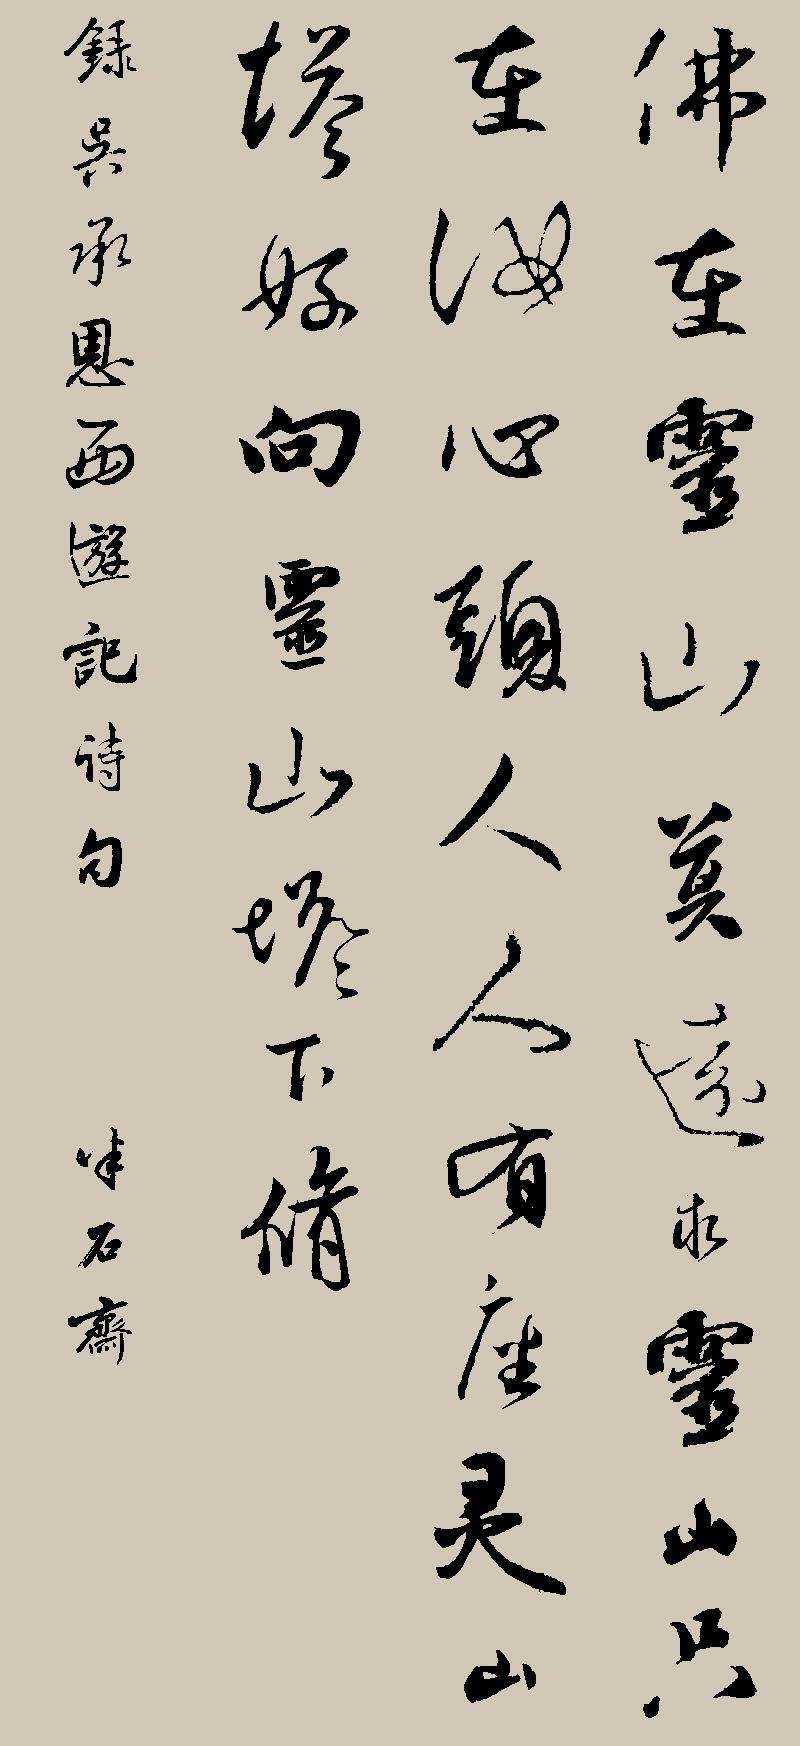 佛在靈山莫遠求靈山只
在汝心頭人人有座灵山
塔好向靈山塔下脩
錄吳承恩西遊記诗句
半石齋